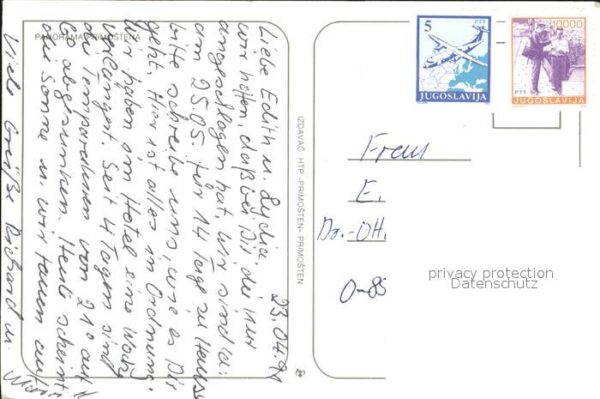 PANORAMA PRIMOŠTENA
23.04.91
Liebe Edith u. Lydia.
wir hoffen, daß bei Dir die Kur
angeschlagen hat. Wir sind
am 25.05. für 14 Tage zu Hause
bitte schreibe uns, wie es Dir
geht. Hier ist alles in Ordnung.
Wir haben im Hotel eine Woche
verlängert. Seit 4 Tagen sind
die Temperaturen von 21° auf
abgesunken. Heute scheint
die Sonne u. wir
Viele Grüße Richard u.
IZDAVAČ HTP -PRIMOŠTEN- PRIMOŠTEN
5
PTT
JUGOSLAVIJA
10000
PTT
JUGOSLAVIJA
Frau
E.
Dr.-
O-85
privacy protection
Datenschutz